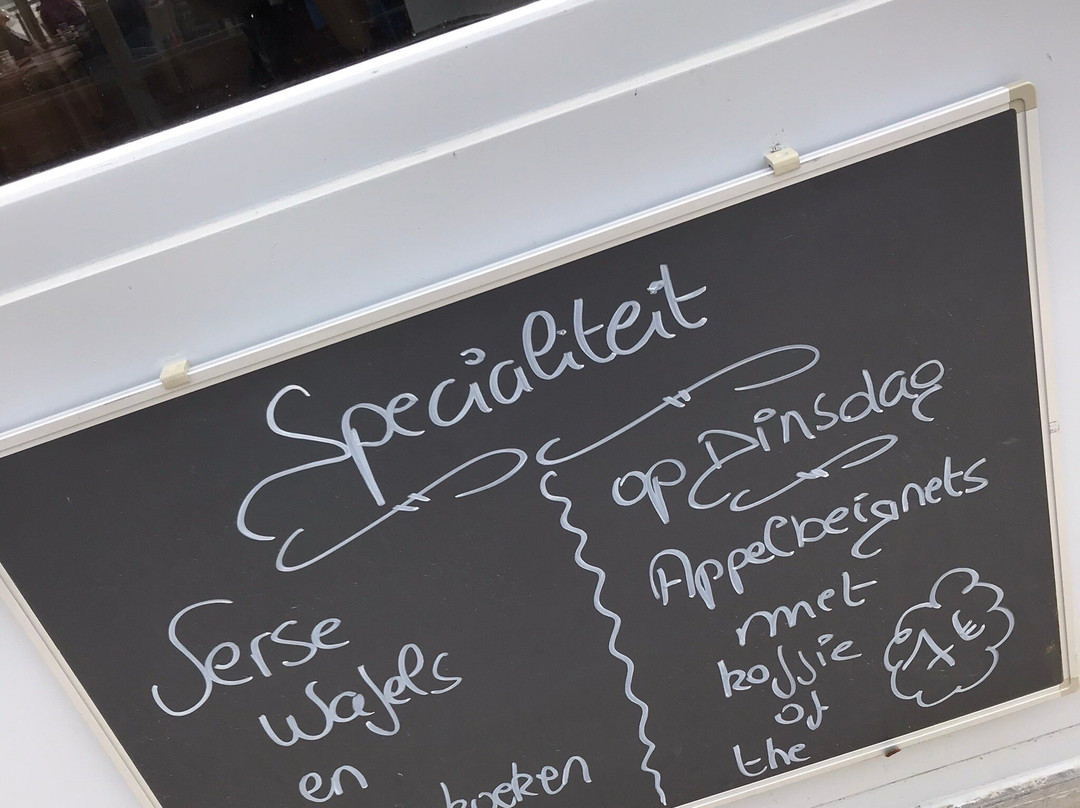 Specialiteit
Verse
Wafels
en
koeken
op Dinsdag
Appelbeignets
met
koffie
of
the